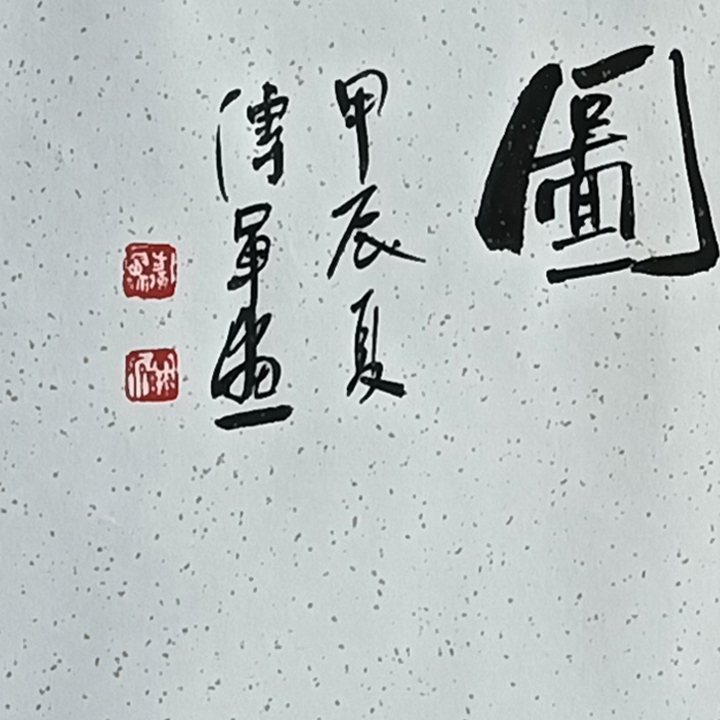 圖
甲辰夏
傳軍畫